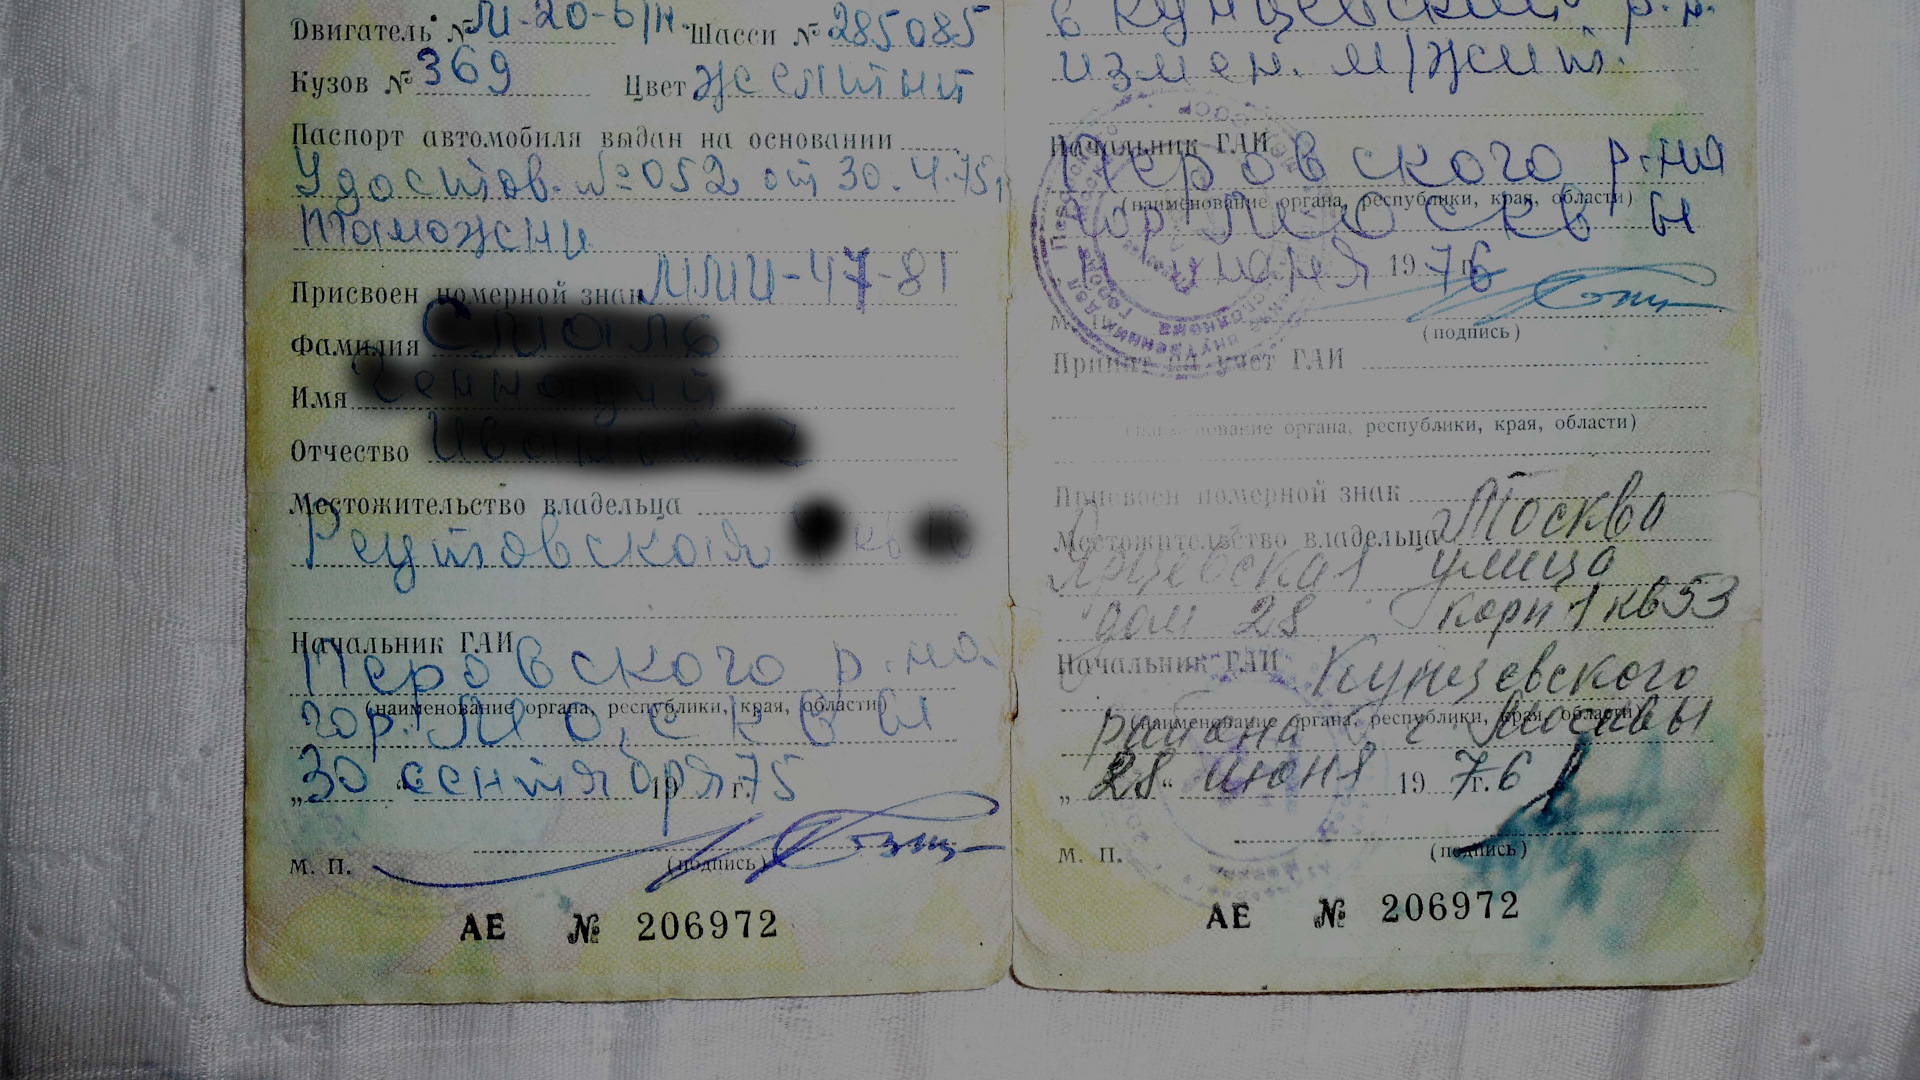 Двигатель № М-20-б/н Шасси № 285085
Кузов № 369 Цвет желтый
Паспорт автомобиля выдан на основании
Удостов. №052 от 30.4.75г
таможни
Присвоен номерной знак ММИ-47-81
Фамилия
Имя
Отчество
Местожительство владельца
Реутовская кв
Начальник ГАИ
Перовского р.на
(наименование органа, республики, края, области)
гор. Москвы
„30“ сентября 1975 г.
М. П. (подпись)
АЕ № 206972
в Кунцевский р.н.
измен. м/жит.
Начальник ГАИ
Перовского р.на
(наименование органа, республики, края, области)
гор. Москвы
1976 г.
М. П. (подпись)
Принят на учет ГАИ
(наименование органа, республики, края, области)
Присвоен номерной знак
Местожительство владельца Москва
Ярцевская улица
дом 28 корп 1 кв 53
Начальник ГАИ Кунцевского
(наименование органа, республики, края, области)
района г Москвы
„28“ июня 1976 г.
М. П. (подпись)
АЕ № 206972